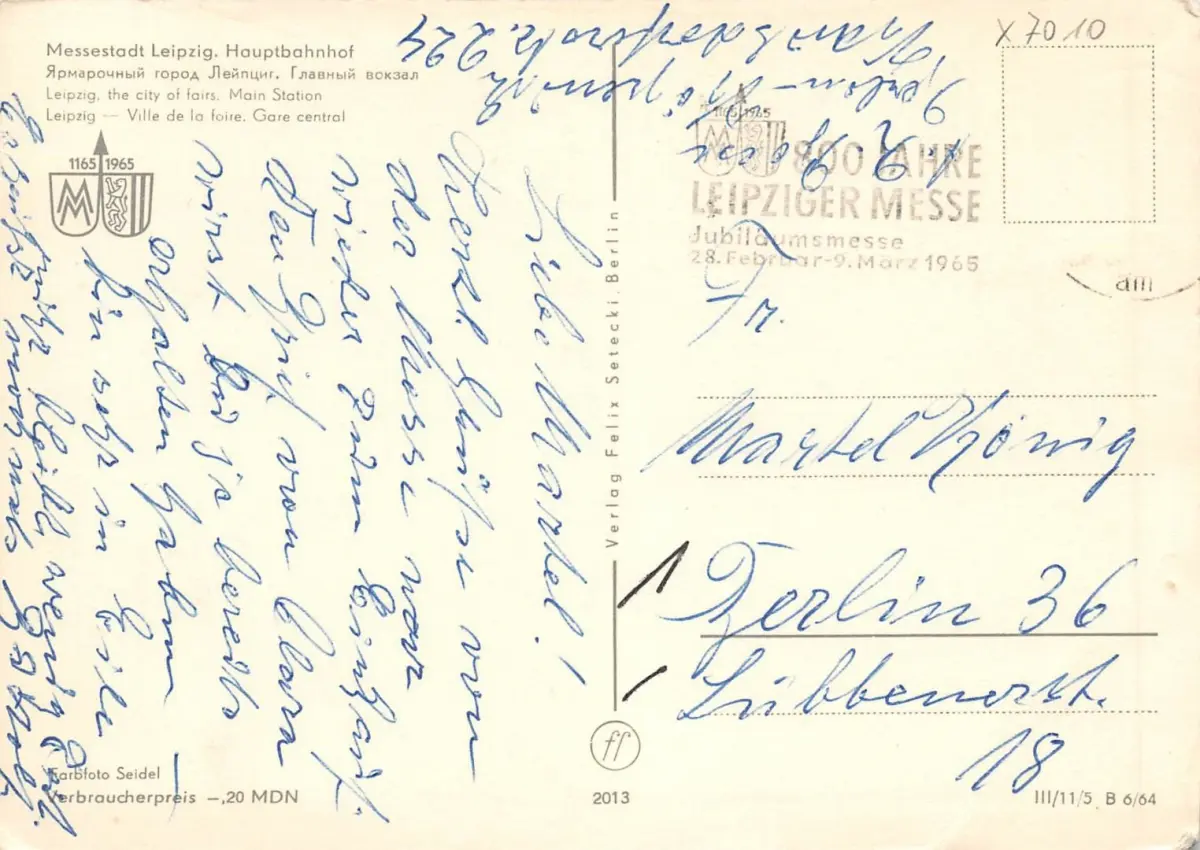 Messestadt Leipzig. Hauptbahnhof
Ярмарочный город Лейпциг. Главный вокзал
Leipzig, the city of fairs. Main Station
Leipzig — Ville de la foire. Gare central
1165 1965
Liebe Martel!
Herzl. Grüße von
der Messe
wieder zum
Den Brief von Clara
wirst Du ja bereits
erhalten haben
Bin sehr in Eile
Farbfoto Seidel
Verbraucherpreis —,20 MDN
Verlag Felix Setecki, Berlin
ff
2013
X 7010
224
1165 1965
800 JAHRE
LEIPZIGER MESSE
Jubiläumsmesse
28. Februar-9. März 1965
am
Fr.
Martel König
Berlin 36
Lübbenerstr.
18
III/11/5 B 6/64